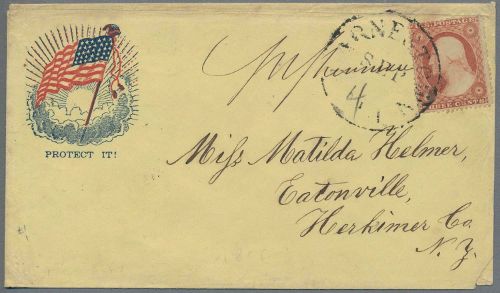 PROTECT IT!
U.S. POSTAGE
THREE CENTS
4
Miss Matilda Helmer,
Eatonville,
Herkimer Co
N.Y.